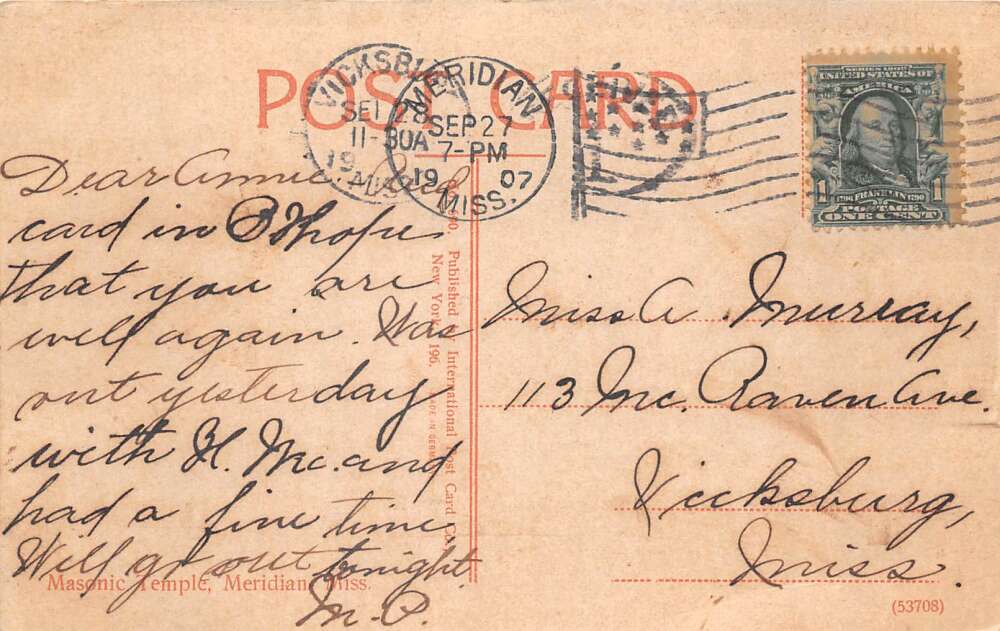 POST CARD
VICKSBURG
SEP 28
11-30A
19
MISS.
MERIDIAN
SEP 27
7-PM
19 07
MISS.
SERIES 1902
UNITED STATES OF
AMERICA
1 FRANKLIN 1
1706 1790
POSTAGE
ONE CENT
Dear Annie
card in hope
that you are
well again. Was
out yesterday
with H. Mc. and
had a fine time
Will go out tonight
M.P.
Miss A. Murray,
113 Mc. Raven Ave.
Vicksburg,
Miss.
Published by International Post Card Co.
New York. 196.
MADE IN GERMANY
Masonic Temple, Meridian, Miss.
(53708)